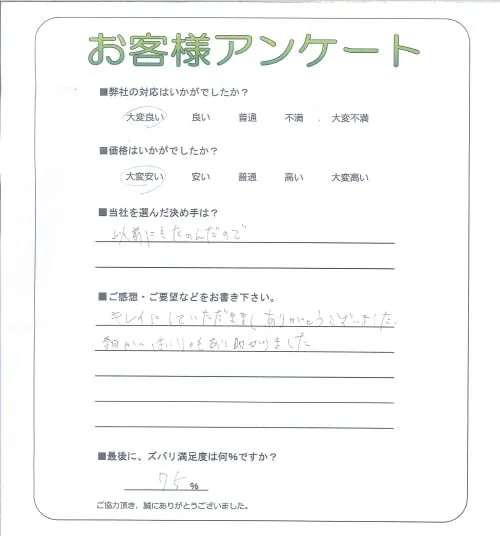 お客様アンケート
■弊社の対応はいかがでしたか？
大変良い 良い 普通 不満 大変不満
■価格はいかがでしたか？
大変安い 安い 普通 高い 大変高い
■当社を選んだ決め手は？
以前にもたのんだので
■ご感想・ご要望などをお書き下さい。
キレイにしていただきまし ありがとうございました。
助かりました
■最後に、ズバリ満足度は何％ですか？
75 %
ご協力頂き、誠にありがとうございました。